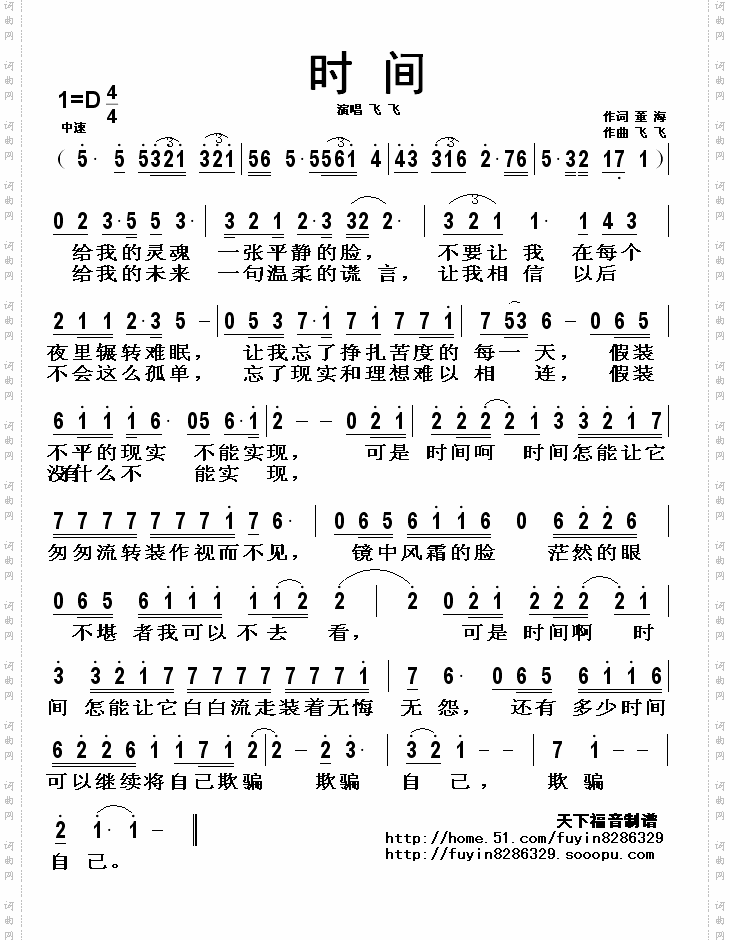 时 间
1=D 4/4
中速
演唱 飞 飞
作词 董 海
作曲 飞 飞
( 5· 5 5321 321 | 56 5· 5561 4 | 43 316 2· 76 | 5· 32 17 1 )
0 2 3·5 5 3· | 3 2 1 2·3 32 2· | 3 2 1 1· 1 4 3
给我的灵魂 一张平静的脸， 不要让 我 在每个
给我的未来 一句温柔的谎 言， 让我相 信 以后
2 1 1 2·3 5 – | 0 5 3 7·1 7 1 7 7 1 | 7 53 6 – 0 6 5
夜里辗转难眠， 让我忘了挣扎苦度的 每一 天， 假装
不会这么孤单， 忘了现实和理想难以 相 连， 假装
6 1 1 1 6· 05 6·1 | 2 – – 0 2 1 | 2 2 2 2 2 1 3 3 2 1 7
不平的现实 不能实现， 可是 时间呵 时间怎能让它
没有什么不 能实 现，
7 7 7 7 7 7 7 1 7 6· | 0 6 5 6 1 1 6 0 6 2 2 6
匆匆流转装作视而不见， 镜中风霜的脸 茫然的眼
0 6 5 6 1 1 1 1 1 2 2 | 2 0 2 1 2 2 2 2 1
不堪 者我可以 不 去 看， 可是 时间啊 时
3 3 2 1 7 7 7 7 7 7 7 7 1 | 7 6· 0 6 5 6 1 1 6
间 怎能让它白白流走装着无悔 无 怨， 还有 多少时间
6 2 2 6 1 1 7 1 2 | 2 – 2 3· | 3 2 1 – – | 7 1 – –
可以继续将自己欺骗 欺骗 自 己， 欺 骗
2 1· 1· –
自 己。
天下福音制谱
http://home.51.com/fuyin8286329
http://fuyin8286329.sooopu.com
词曲网